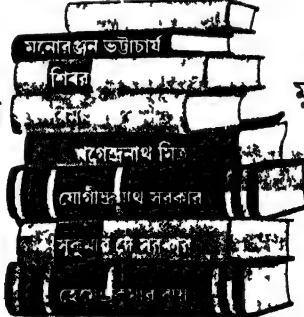 মনোরঞ্জন ভট্টাচার্য
শিবর
খগেন্দ্রনাথ মিত্র
যোগীন্দ্রনাথ সরকার
সুকুমার দে সরকার
হেমেন্দ্রকুমার রায়